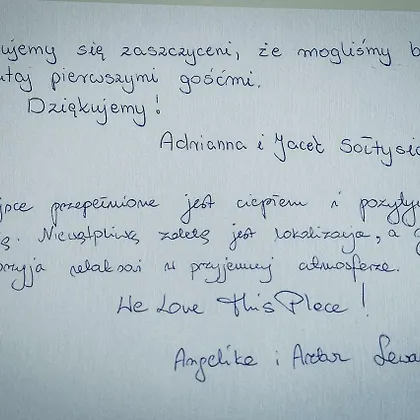 ujemy się zaszczyceni, że mogliśmy b
utaj pierwszymi gośćmi.
Dziękujemy!
Adrianna i Jacek Sołtysia
jsce przepełnione jest ciepłem i pozyty
ą. Niewątpliwą zaletą jest lokalizacja, a
przyja relaksowi w przyjemnej atmosferze.
We Love This Place!
Angelika i Artur Lewa